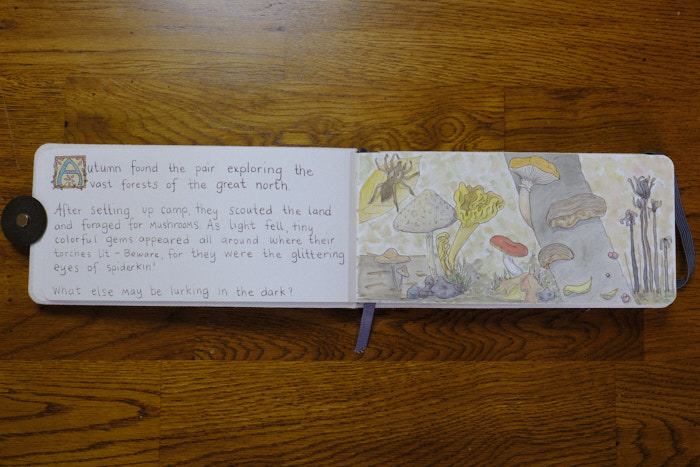 Autumn found the pair exploring the
vast forests of the great north.
After setting up camp, they scouted the land
and foraged for mushrooms. As light fell, tiny
colorful gems appeared all around where their
torches lit – Beware, for they were the glittering
eyes of spiderkin!
What else may be lurking in the dark?